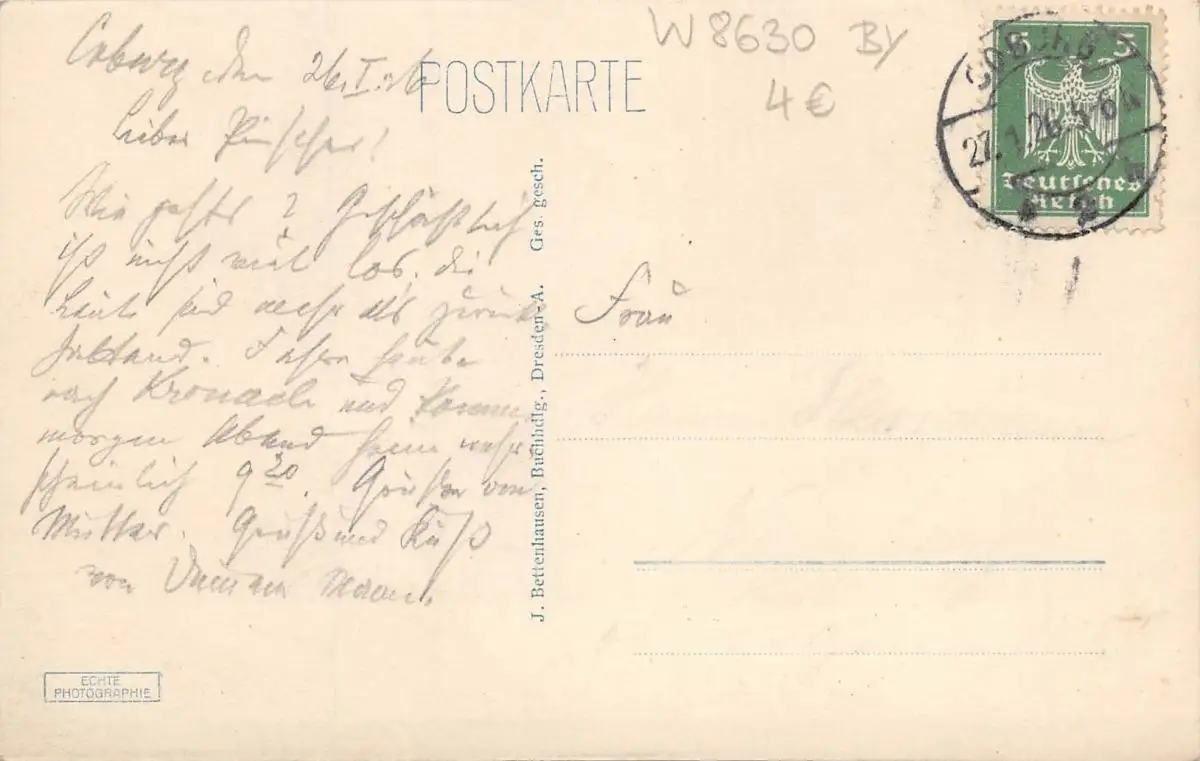 W 8630 BY
4 €
POSTKARTE
Coburg den 26.I.26
Lieber
Wie geht's? Geschäftlich
ist nicht viel los, die
Leute sind mehr als zurück
haltend. Fahre heute
nach Kronach und komme
morgen Abend heim wahr
scheinlich 9 30. Grüße von
Mutter. Gruß und Kuß
von
Frau
J. Bettenhausen, Buchhdlg., Dresden-A. Ges. gesch.
ECHTE
PHOTOGRAPHIE
5 5
Deutsches
Reich
COBURG
27.1.26.5-6 N
2